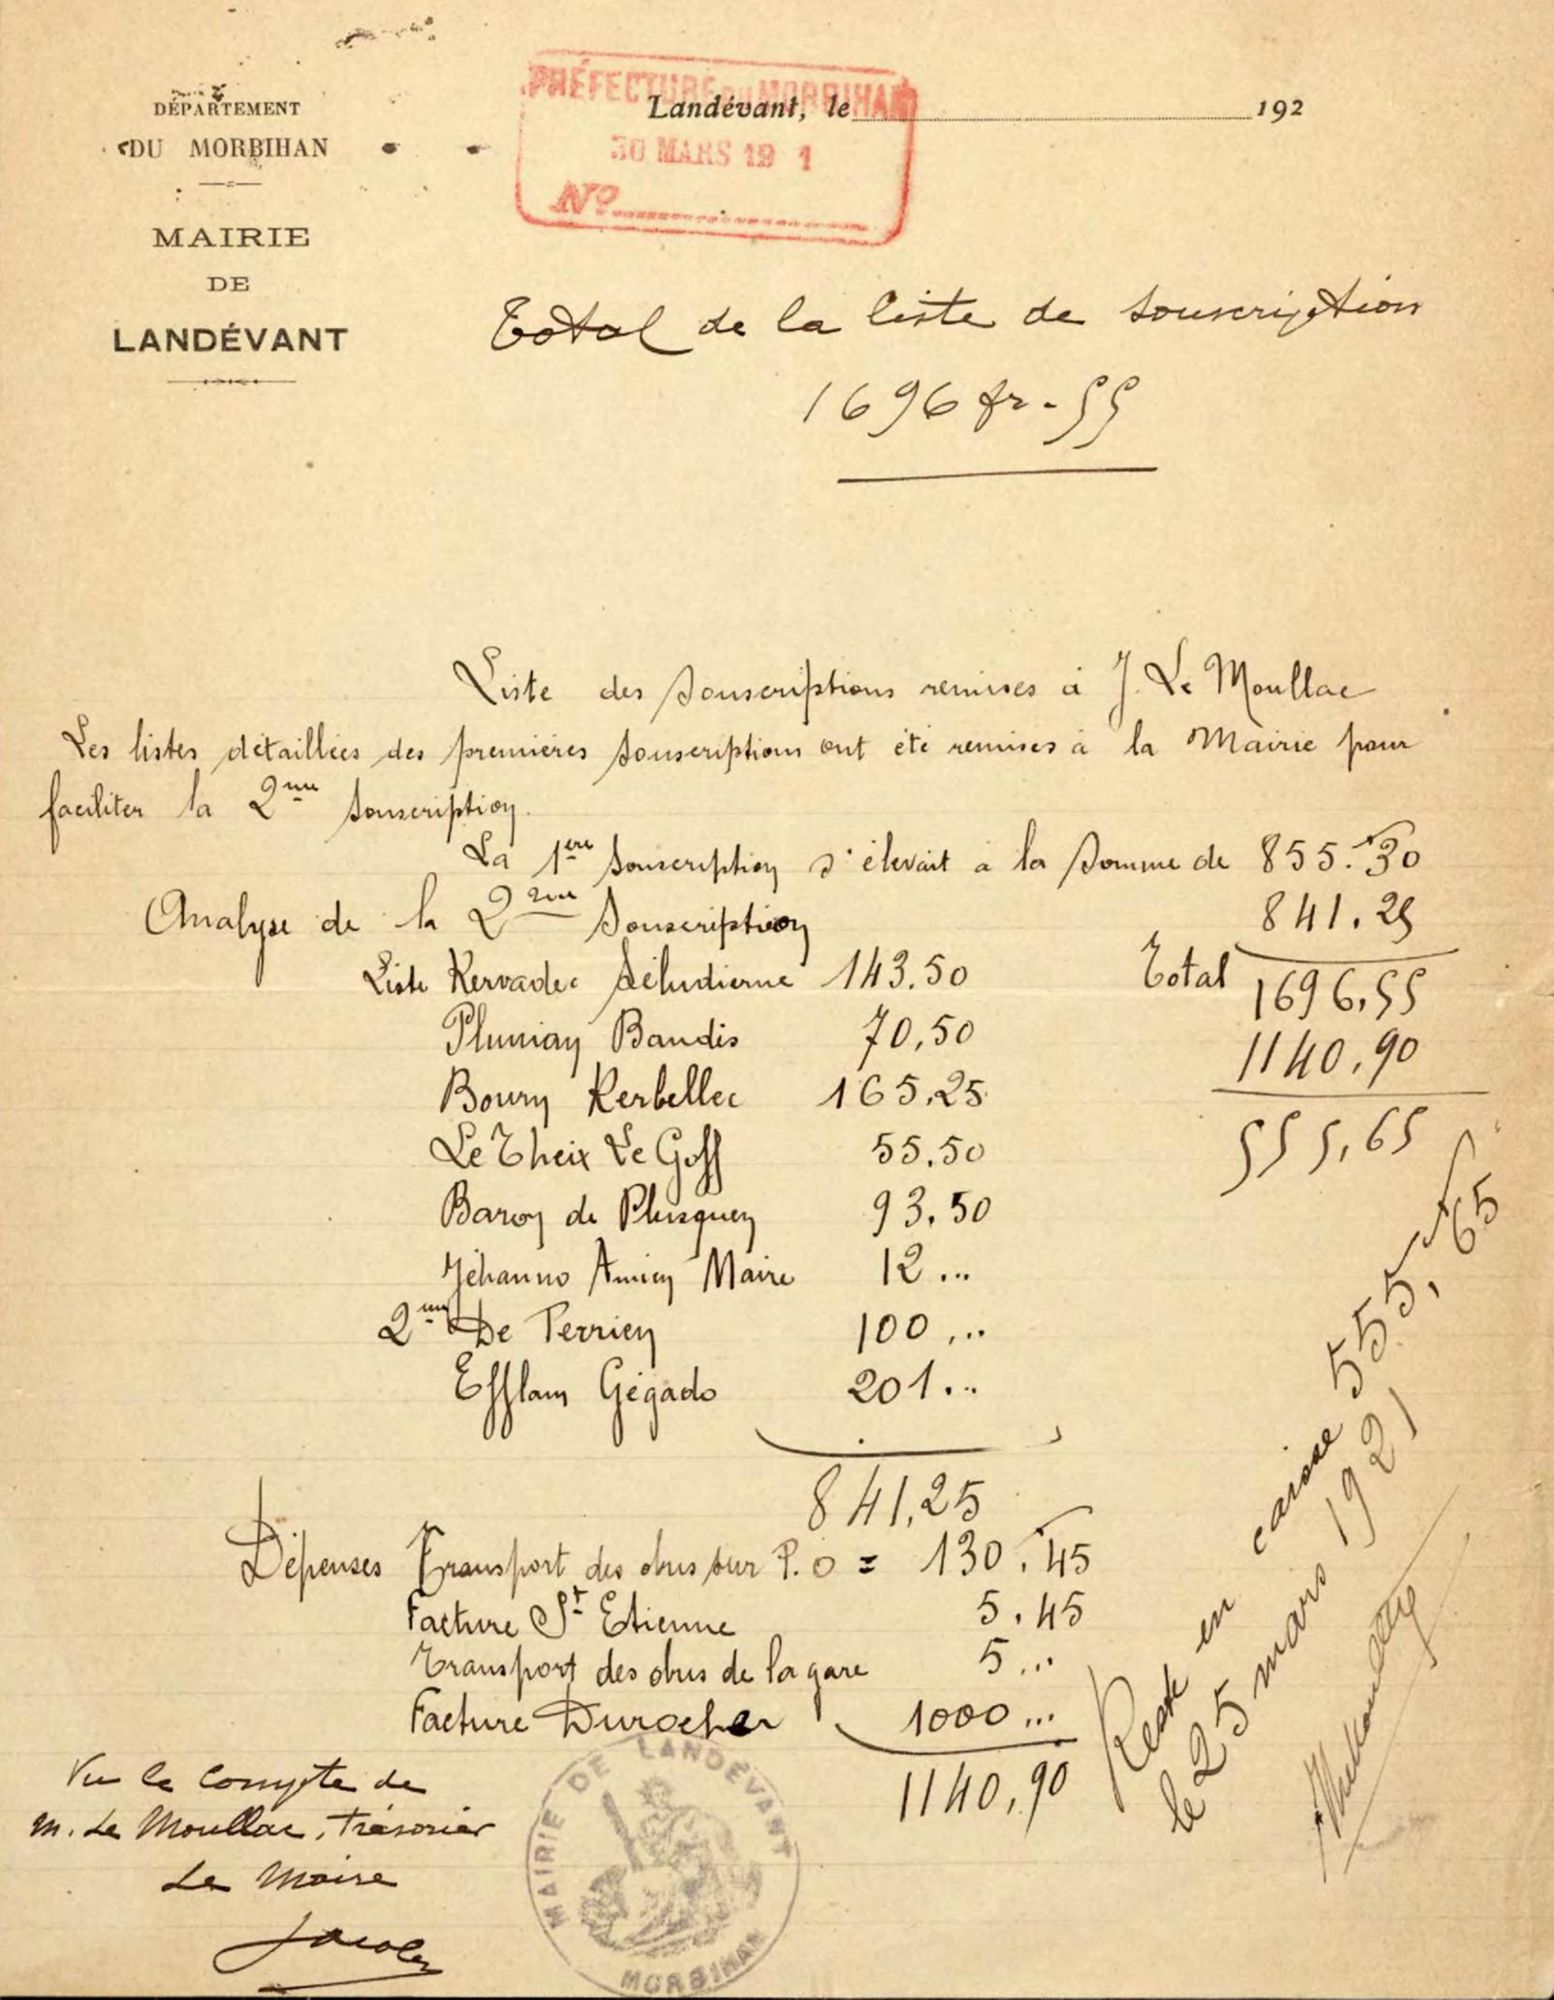 DÉPARTEMENT
DU MORBIHAN
MAIRIE
DE
LANDÉVANT
PRÉFECTURE DU MORBIHAN
Landévant, le 192
30 MARS 19 1
No
Total de la liste de souscription
1696 fr. 55
Liste des souscriptions remises à J. Le Moullac
Les listes détaillées des premières souscriptions ont été remises à la Mairie pour
faciliter la 2me souscription.
La 1ère souscription s'élevait à la somme de 855.30
Analyse de la 2me souscription 841.25
Liste Kervadec 143.50 Total 1696,55
Pluniay Baudis 70,50 1140.90
Boury Kerbellec 165.25 555,65
Le Theix Le Goff 55.50
Baron de Plusquen 93.50
Jéhanno Amien Maire 12...
2me De Perrien 100...
Efflam Gégado 201...
841,25
Dépenses Transport des obus sur P.O = 130.45
Facture St Etienne 5.45
Transport des obus de la gare 5...
Facture Durocher 1000...
1140,90
Reste en caisse 555,65
le 25 mars 1921
Vu le compte de
M. Le Moullac, trésorier
Le Maire
MAIRIE DE LANDÉVANT
MORBIHAN